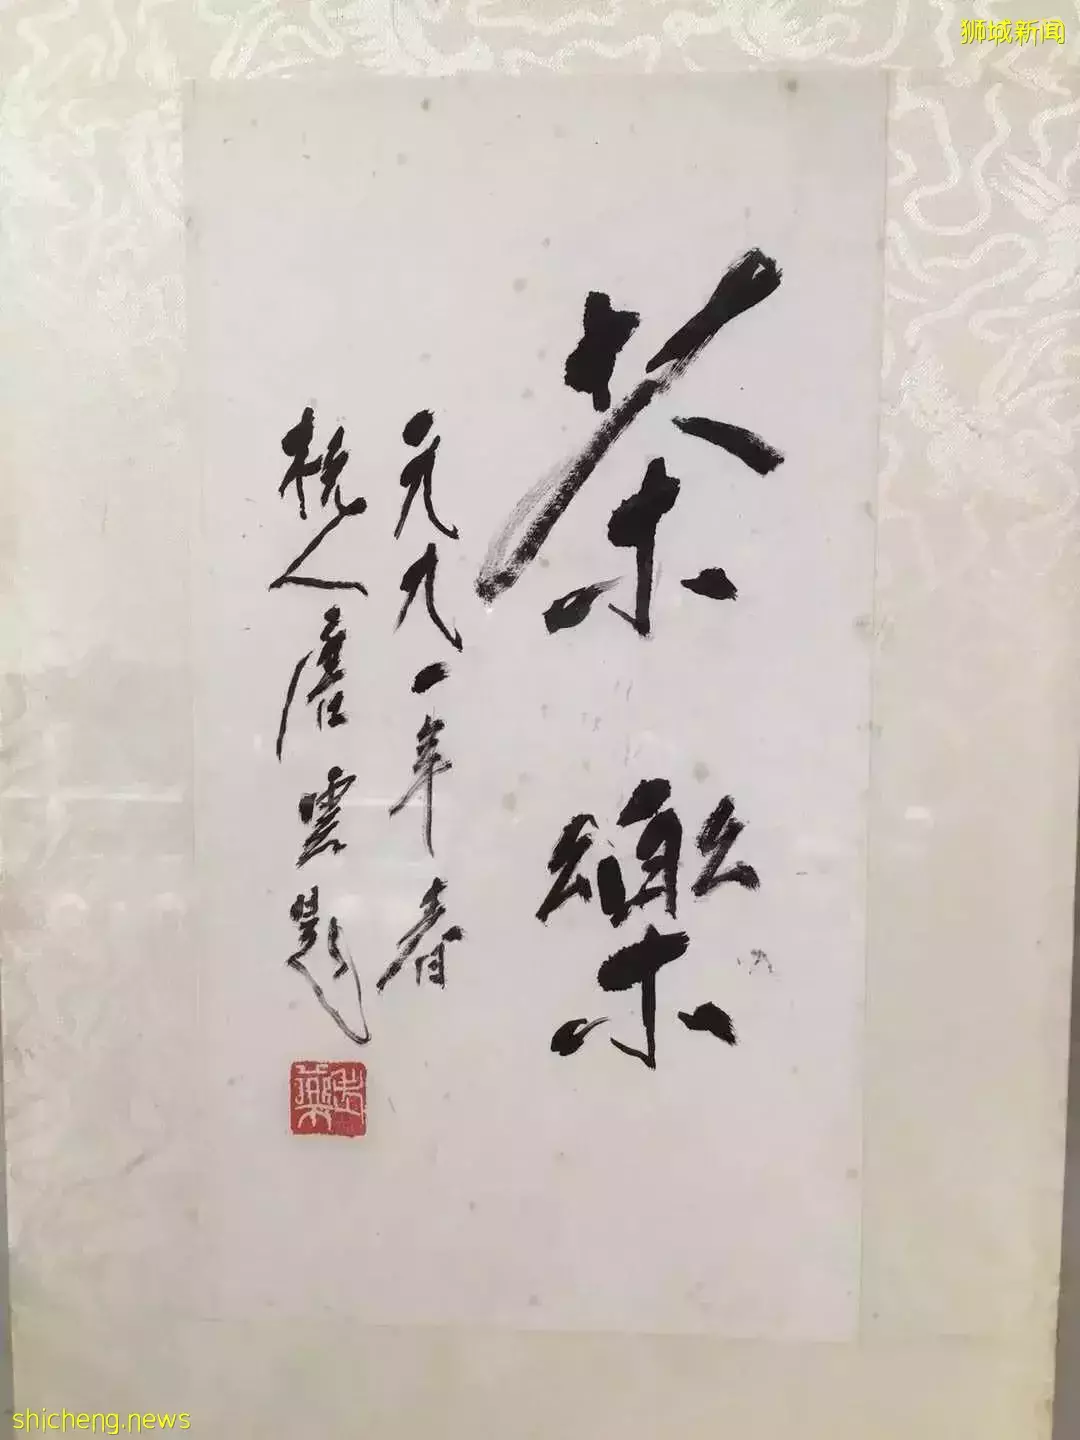 狮城新闻
茶樂
一九九一年春
杭人唐雲題
老藥
shicheng.news